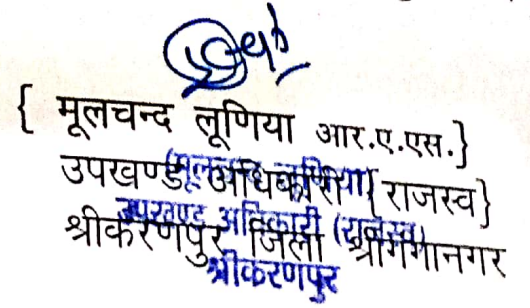 { मूलचन्द लूणिया आर.ए.एस.}
उपखण्ड अधिकारी {राजस्व}
श्रीकरणपुर जिला श्रीगंगानगर
(मूलचन्द लूणिया)
उपखण्ड अधिकारी (राजस्व)
श्रीकरणपुर